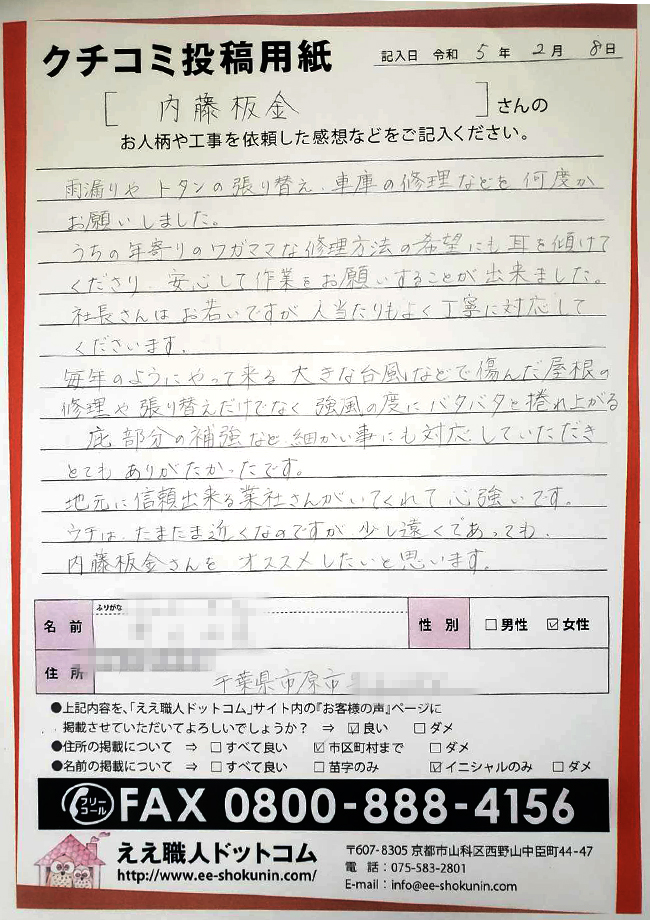 クチコミ投稿用紙
記入日 令和 5 年 2 月 8 日
[ 内藤板金 ] さんの
お人柄や工事を依頼した感想などをご記入ください。
雨漏りや トタンの張り替え、車庫の修理などを何度か
お願いしました。
うちの年寄りのワガママな修理方法の希望にも耳を傾けて
くださり、安心して作業をお願いすることが出来ました。
社長さんは お若いですが 人当たりもよく丁寧に対応して
くださいます。
毎年のようにやって来る 大きな台風などで傷んだ屋根の
修理や張り替えだけでなく 強風の度にバタバタと捲れ上がる
庇部分の補強など 細かい事にも対応していただき
とてもありがたかったです。
地元に信頼出来る業社さんがいてくれて心強いです。
ウチは、たまたま近くなのですが 少し遠くであっても、
内藤板金さんを オススメしたいと思います。
ふりがな
名 前
性 別 □男性 ☑女性
住 所
千葉県市原市
●上記内容を、「ええ職人ドットコム」サイト内の『お客様の声』ページに
掲載させていただいてよろしいでしょうか? ⇒ ☑良い □ダメ
●住所の掲載について ⇒ □すべて良い ☑市区町村まで □ダメ
●名前の掲載について ⇒ □すべて良い □苗字のみ ☑イニシャルのみ □ダメ
フリーコール FAX 0800-888-4156
ええ職人ドットコム
http://www.ee-shokunin.com/
〒607-8305 京都市山科区西野山中臣町44-47
電 話:075-583-2801
E-mail:info@ee-shokunin.com